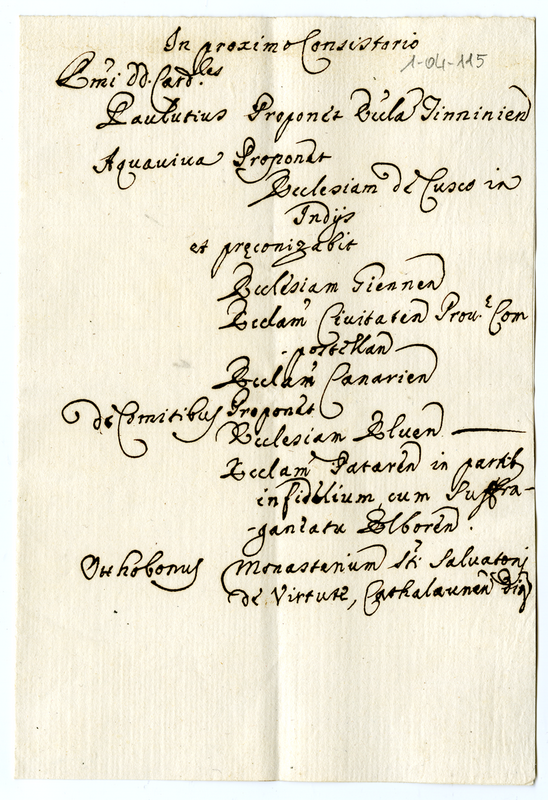 In proximo Consistorio
1-04-115
Emi DD. Card.les
Paulutius Proponet Eccla Tinninien
Aquaviva Proponet
Ecclesiam de Cusco in
Indÿs
et pręconizabit
Ecclesiam Giennen
Ecclam Civitaten Prov.e Com
postellan
Ecclam Canarien
de Comitibus Proponet
Ecclesiam Elven
Ecclam Pataren in partib
infidelium cum Suffra-
-ganeatu Elboren.
Otthobonus Monasterium Sti Salvatoris
de Virtute, Cathalaunen